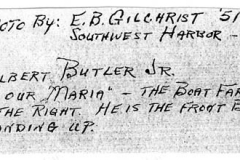 OTO BY: E.B. GILCHRIST '51
SOUTHWEST HARBOR -
LBERT BUTLER JR.
OUR "MARIA" - THE BOAT FAR
THE RIGHT. HE IS THE FRONT
NDING UP.